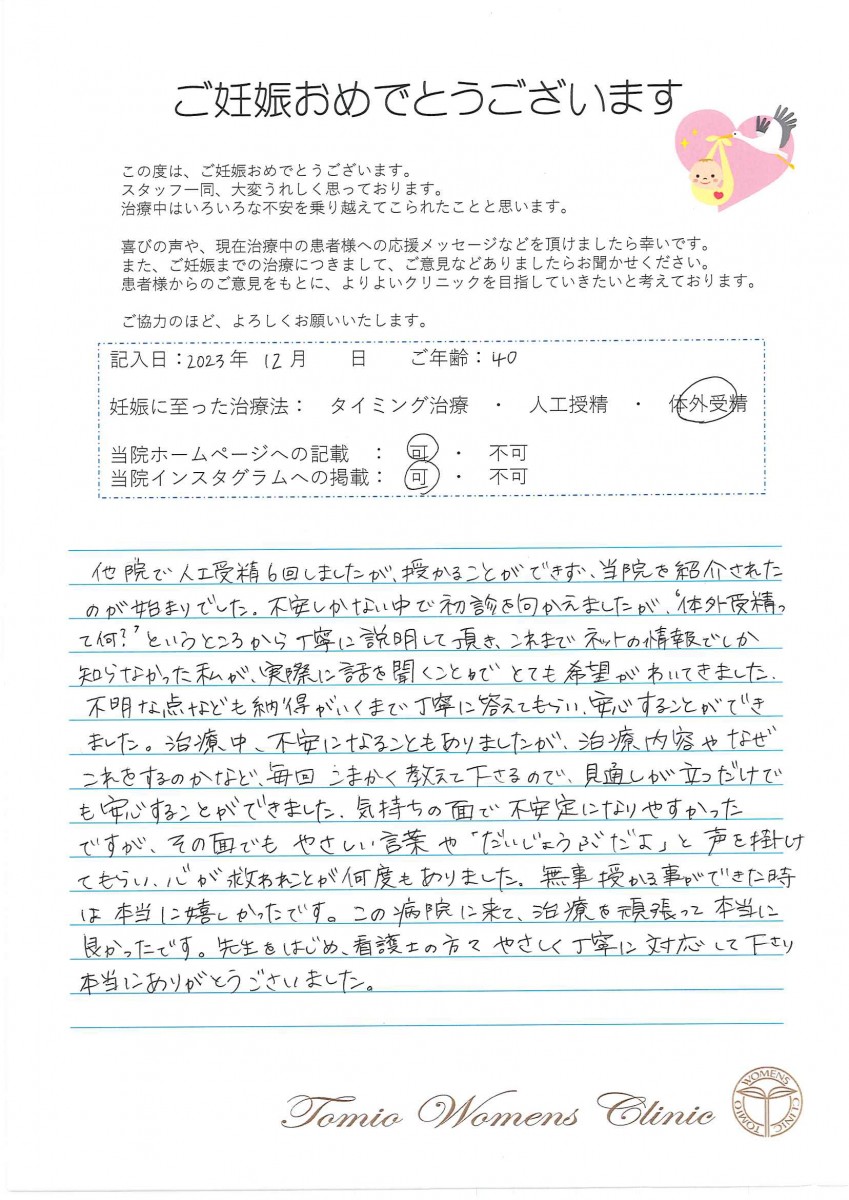 ご妊娠おめでとうございます
この度は、ご妊娠おめでとうございます。
スタッフ一同、大変うれしく思っております。
治療中はいろいろな不安を乗り越えてこられたことと思います。
喜びの声や、現在治療中の患者様への応援メッセージなどを頂けましたら幸いです。
また、ご妊娠までの治療につきまして、ご意見などありましたらお聞かせください。
患者様からのご意見をもとに、よりよいクリニックを目指していきたいと考えております。
ご協力のほど、よろしくお願いいたします。
記入日：2023年 12月 日 ご年齢：40
妊娠に至った治療法： タイミング治療 ・ 人工授精 ・ 体外受精
当院ホームページへの記載 ： 可 ・ 不可
当院インスタグラムへの掲載： 可 ・ 不可
他院で人工受精6回しましたが、授かることができず、当院を紹介された
のが始まりでした。不安しかない中で初診を向かえましたが、“体外受精っ
て何？”というところから丁寧に説明して頂き、これまでネットの情報でしか
知らなかった私が、実際に話を聞くことがでとても希望がわいてきました。
不明な点なども納得がいくまで丁寧に答えてもらい、安心することができ
ました。治療中、不安になることもありましたが、治療内容やなぜ
これをするのかなど、毎回こまかく教えて下さるので、見通しが立つだけで
も安心することができました。気持ちの面で不安定になりやすかった
ですが、その面でもやさしい言葉や「だいじょうぶだよ」と声を掛け
てもらい、心が救われことが何度もありました。無事授かる事ができた時
は本当に嬉しかったです。この病院に来て、治療を頑張って本当に
良かったです。先生をはじめ、看護士の方々やさしく丁寧に対応して下さり
本当にありがとうございました。
Tomio Womens Clinic
TOMIO WOMENS CLINIC